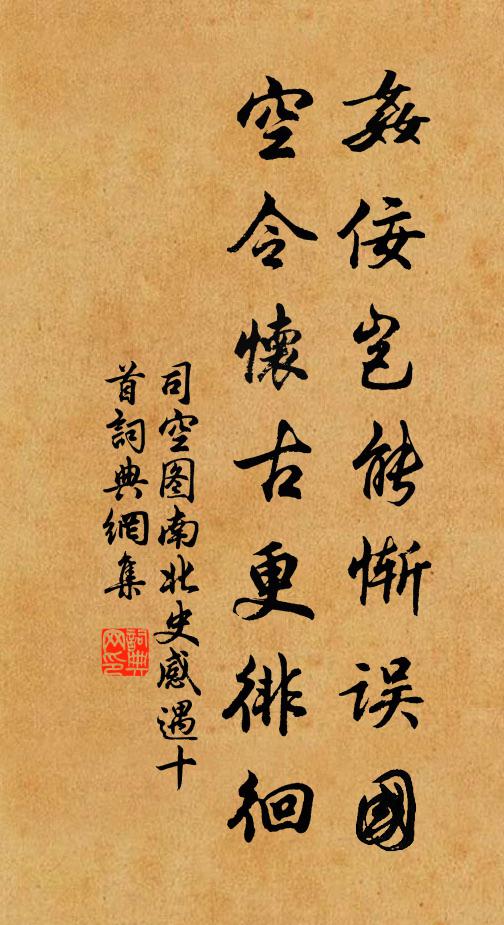 姦佞豈能慚误國
空令懷古更徘徊
司空图南北史感遇十
首詞典網集
詞典
网印